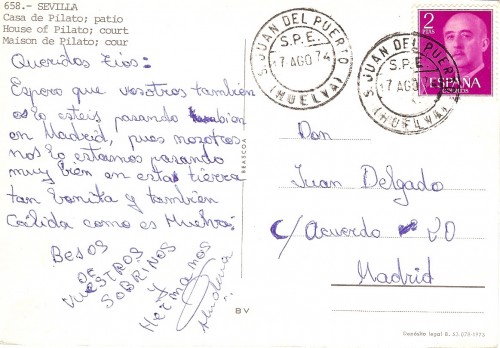 658.- SEVILLA
Casa de Pilato; patio
House of Pilato; court
Maison de Pilato; cour
Queridos tíos:
Espero que vosotros tambien
os lo esteis pasando bien
en Madrid, pues nosotros
nos lo estamos pasando
muy bien en esta tierra
tan bonita y tambien
Cálida como es Huelva:
BESOS
DE
VUESTROS
SOBRINOS
Y
HERMANOS
BEASCOA
BV
S. JUAN DEL PUERTO
S.P.E.
17 AGO 74
(HUELVA)
S. JUAN DEL PUERTO
S.P.E.
17 AGO 74
(HUELVA)
2
PTAS
ESPAÑA
CORREOS
Don
Juan Delgado
C/ Acuerdo 20
Madrid
Depósito legal B.